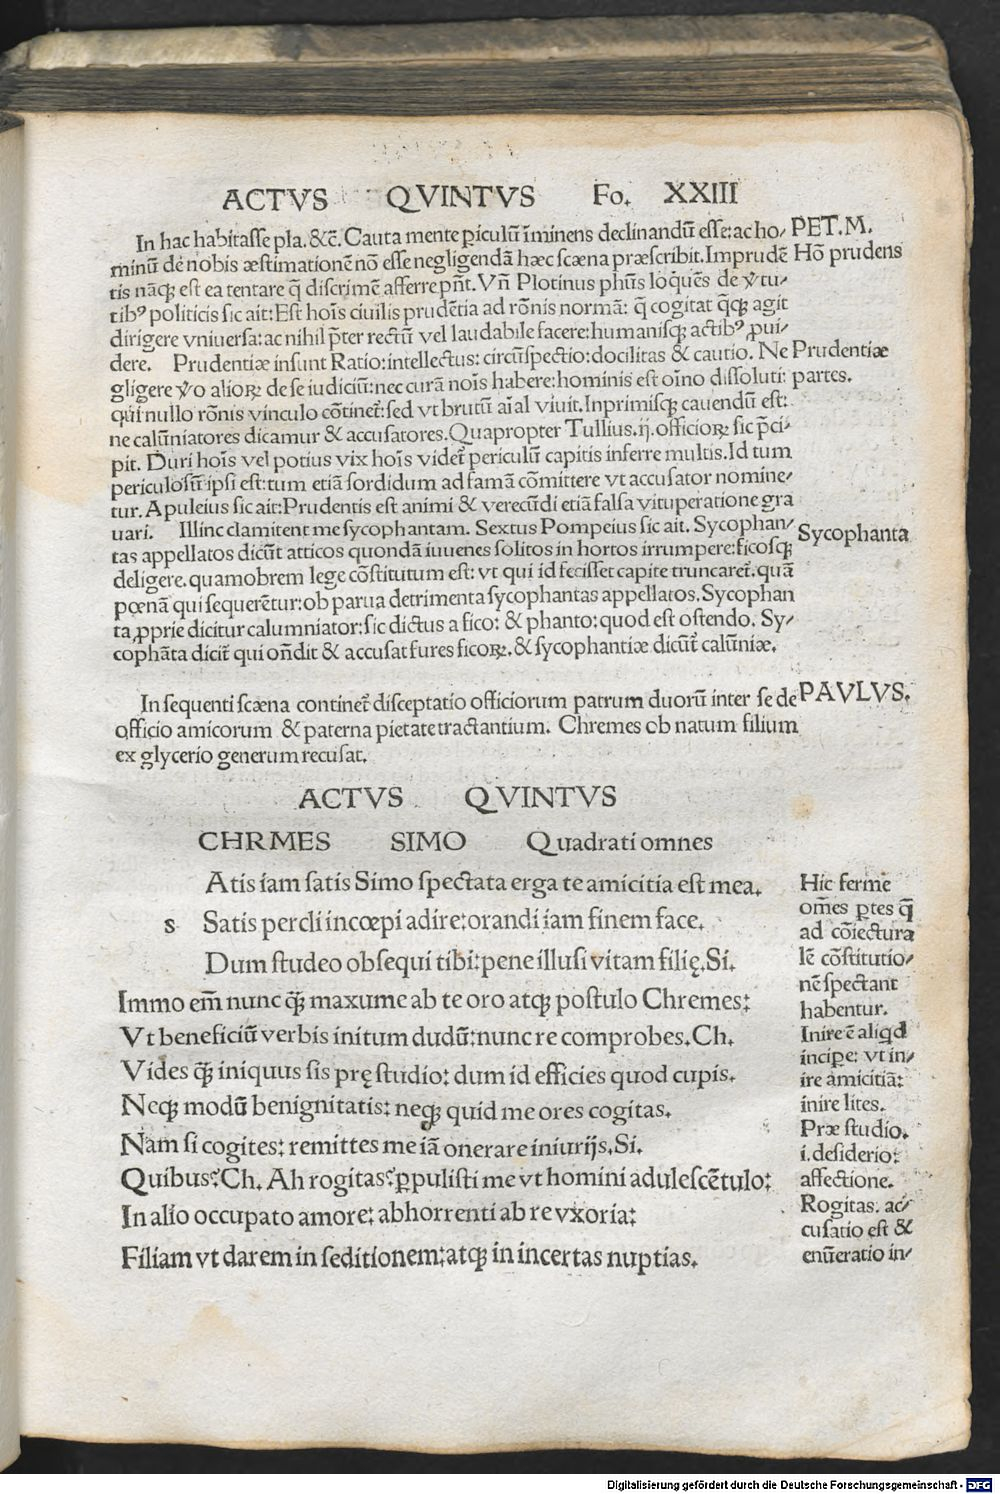 ACTVS QVINTVS Fo. XXIII
In hac habitasse pla. &c̄. Cauta mente ꝑiculū īminens declinandū esse: ac ho/
minū de nobis æstimationē nō esse negligendā hæc scæna præscribit. Imprudē
tis nāqꝫ est ea tentare q̄ discrimē afferre pn̄t. Vn̄ Plotinus phūs loquēs de v̓tu/
tibꝰ politicis sic ait: Est hoīs ciuilis prudētia ad rōnis normā: q̄ cogitat q̄qꝫ agit
dirigere vniuersa: ac nihil p̄ter rectū vel laudabile facere: humanisqꝫ actibꝰ ꝓui/
dere. Prudentiæ insunt Ratio: intellectus: circūspectio: docilitas & cautio. Ne
gligere v̓o alioꝝ de se iudiciū: nec curā noīs habere: hominis est oīno dissoluti:
qui nullo rōnis vinculo cōtinet᷑: sed vt brutū aīal viuit. Inprimisqꝫ cauendū est:
ne calūniatores dicamur & accusatores. Quapropter Tullius. ij. officioꝝ sic p̄ci/
pit. Duri hoīs vel potius vix hoīs videt᷑ periculū capitis inferre multis. Id tum
periculosū ipsi est: tum etiā sordidum ad famā cōmittere vt accusator nomine/
tur. Apuleius sic ait: Prudentis est animi & verecūdi etiā falsa vituperatione gra
uari. Illinc clamitent me sycophantam. Sextus Pompeius sic ait. Sycophan/
tas appellatos dicūt atticos quondā iuuenes solitos in hortos irrumpere: ficosqꝫ
deligere. quamobrem lege cōstitutum est: vt qui id fecisset capite truncaret᷑. quā
pœnā qui sequerētur: ob parua detrimenta sycophantas appellatos. Sycophan
ta ꝓprie dicitur calumniator: sic dictus a fico: & phanto: quod est ostendo. Sy/
cophāta dicit᷑ qui on̄dit & accusat fures ficoꝝ. & sycophantiæ dicūt᷑ calūniæ.
PET. M.
Hō prudens
Prudentiæ
partes.
Sycophanta
In sequenti scæna continet᷑ disceptatio officiorum patrum duorū inter se de
officio amicorum & paterna pietate tractantium. Chremes ob natum filium
ex glycerio generum recusat.
PAVLVS.
ACTVS QVINTVS
CHRMES SIMO Quadrati omnes
Atis iam satis Simo spectata erga te amicitia est mea.
s Satis pericli incœpi adire: orandi iam finem face.
Dum studeo obsequi tibi: pene illusi vitam filię. Si.
Immo em̄ nunc qꝫ̄ maxume ab te oro atqꝫ postulo Chremes:
Vt beneficiū verbis initum dudū: nunc re comprobes. Ch.
Vides qꝫ̄ iniquus sis prę studio: dum id efficies quod cupis.
Neqꝫ modū benignitatis: neqꝫ quid me ores cogitas.
Nam si cogites: remittes me iā onerare iniurijs. Si.
Quibus? Ch. Ah rogitas? ꝑpulisti me vt homini adulescētulo:
In alio occupato amore: abhorrenti ab re vxoria:
Filiam vt darem in seditionem: atqꝫ in incertas nuptias.
Hic ferme
om̄es ꝑtes q̄
ad cōiectura
lē cōstitutio/
nē spectant
habentur.
Inire ē aliqd
inciꝑe: vt in/
ire amicitiā:
inire lites.
Præ studio.
i. desiderio:
affectione.
Rogitas. ac/
cusatio est &
enūeratio in/
Digitalisierung gefördert durch die Deutsche Forschungsgemeinschaft - DFG